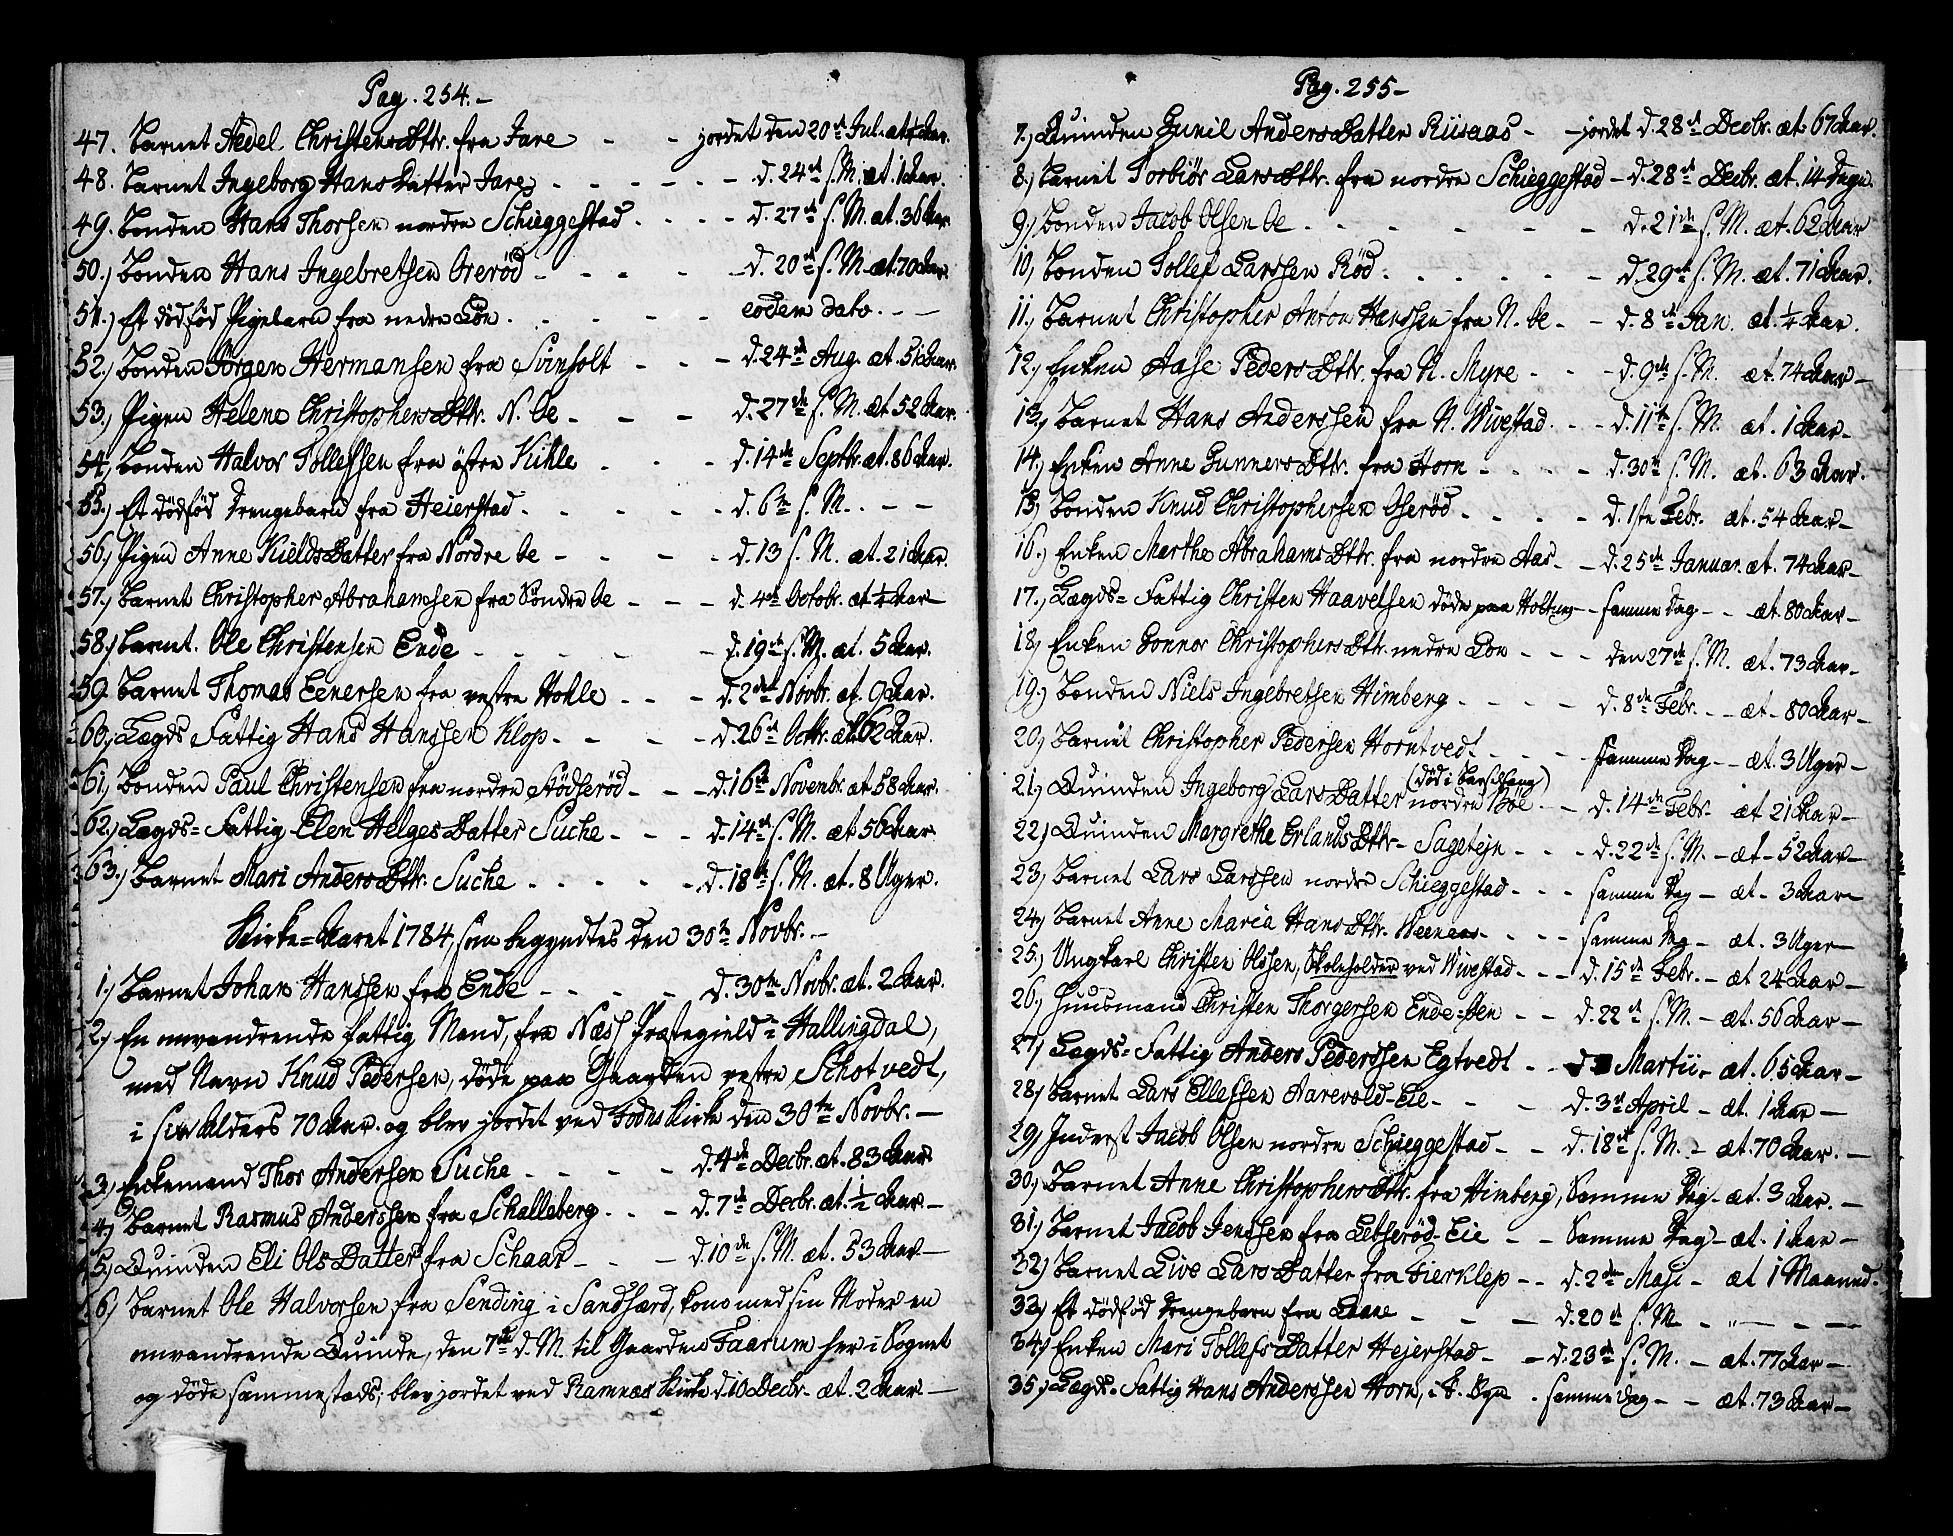 Pag. 254.-
47. Barnet Aedel Christensdttr. fra Jare - - jordet den 20de Jul. æt. Aar.
48. Barnet Ingeborg HansDatter Jare - - - - - - d. 24de s. M. æt. 1 Aar.
49. Bonden Hans Thorsen nordre Schieggestad - - - - d. 27de s. M. æt. 36 Aar.
50.) Bonden Hans Ingebretsen Oreröd - - - - - d. 20de s. M. æt. 70 Aar.
51.) Et dödfód Pigebarn fra nedre Lön - - - - - eodem dato. - -
52.) Bonden Jörgen Hermansen fra Svinholt - - - d. 24de Aug. æt. 51 Aar.
53.) Pigen Helene Christophersdttr. N. Oe - - - d. 27de s. M. æt. 52 Aar.
54.) Bonden Halvor Tollefsen fra östre Kihle - - - d. 14de Septbr. æt. 86 Aar.
55.) Et dödfód Drengebarn fra Heierstad - - - - - d. 6te s. M. - - -
56.) Pigen Anne KieldsDatter fra Nordre Oe - - - - d. 13 s. M. æt. 21 Aar.
57.) Barnet Christopher Abrahamsen fra Söndre Oe - - - d. 4de Octobr. æt ¼ Aar -
58.) Barnet Ole Christensen Ende - - - - - d. 19de s. M. æt. 5 Aar.
59. Barnet Thomas Eenersen fra vestre Hohle - - - d. 2den Novbr. æt. 9 Aar.
60.) Lægds Fattig Hans Hanssen Klop - - - - d. 26de Octbr. æt 62 Aar.
61.) Bonden Paul Christensen fra nordre Stödseröd - - - d. 16de Novembr. æt 58 Aar.
62.) Lægds-Fattig Elen HelgesDatter Suche - - - d. 14de s. M. æt 56 Aar.
63.) Barnet Mari AndersDttr. Suche - - - - - d. 18de s. M. æt. 8 Uger.
Kirke-Aaret 1784, som begyndtes den 30te Novbr. -
1.) Barnet Johan Hanssen fra Ende - - - - d. 30te Novbr. æt. 2 Aar.
2.) En omvandrende Fattig Mand, fra Næss Præstegield i Hallingdal,
med Navn Knud Pedersen, döde paa Gaarden vestre Schotvedt,
i sin Alders 70 Aar. og blev jordet ved Fodns Kirke den 30te Novbr. -
3.) Enkemand Thor Andersen Suche - - - - d. 4de Decbr. æt. 83 Aar.
4.) Barnet Rasmus Anderssen fra Schalleberg - - - d. 7de Decbr. æt. ½ Aar. -
5.) Quinden Eli OlsDatter fra Schaar - - - d. 10de s. M. æt. 53 Aar -
6.) Barnet Ole Halvorsen fra Sending i Sandsærd, kom med sin Moder en
omvandrende Quinde, den 7de d. M. til Gaarden Faarum her i Sognet
og döde sammestads; blev jordet ved Ramnæs Kirke d. 10 Decbr. æt. 2 Aar -
Pag. 255-
7.) Quinden Gunil AndersDatter Riisaas - - jordet d. 28de Decbr. æt. 67 Aar.
8.) Barnet Torbiör LarsDttr. fra nordre Schieggestad - d. 28de Decbr. æt. 14 Dage.
9.) Bonden Jacob Olsen Oe - - - - - - d. 21de s. M. æt. 62 Aar
10.) Bonden Tollef Larssen Röd - - - - - d. 29de s. M. æt. 71 Aar.
11.) Barnet Christopher Anton Hanssen fra N. Oe - - d. 8de Jan. æt. ¼ Aar.
12.) Enken Aase PedersDttr. fra N. Myre - - - d. 9de s. M. æt. 74 Aar -
13.) Barnet Hans Anderssen fra N. Wivestad - - - d. 11te s. M. æt. 1 Aar -
14.) Enken Anne GunnersDttr. fra Horn - - - - d. 30te s. M. æt. 63 Aar.
15.) Bonden Knud Christophersen Oseröd - - - - d. 1ste Febr. æt. 54 Aar -
16.) Enken Marthe AbrahamsDttr. fra nordre Aas - - d. 25de Januar. æt. 74 Aar -
17.) Lægds-Fattig Christen Haavelsen döde paa Holtung - samme Dag - - æt. 80 Aar -
18.) Enken Gonnor ChristophersDttr. nedre Lön - - - den 27de s. M. æt. 73 Aar -
19.) Bonden Niels Ingebretsen Himberg - - - - d. 8de Febr. - - æt - 80 Aar -
20.) Barnet Christopher Pedersen Horntvedt - - - samme Dag - æt. 3 Uger -
21.) Quinden Ingeborg LarsDatter nordre Böe (död i Barselseng) - - d. 14de Febr. - æt 21 Aar -
22.) Quinden Margrethe ErlandsDttr - Sagetejn - - - d. 22de s. M. - æt - 52 Aar -
23.) Barnet Lars Larssen nordre Schieggestad - - - samme Dag - æt - 3 Aar -
24.) Barnet Anne Maria HansDttr. Weeneas - - - - samme Dag - æt. 3 Uger -
25.) Ungkarl Christen Olssen, Skoleholder ved Wivestad - - - d. 15de Febr. - æt 24 Aar -
26.) Huusmand Christen Thorgersen Ende-Oen - - d. 22de s. M. - æt. 56 Aar -
27.) Lægds-Fattig Anders Pederssen Egtvedt - - d. Martii - æt. 65 Aar -
28.) Barnet Lars Ellefsen Aarevold-Eie - - - d. 3de April - æt. 1 Aar -
29.) Inderst Jacob Olsen nordre Schieggestad - - d. 18de s. M. - æt. 70 Aar. -
30.) Barnet Anne ChristophersDttr. fra Himberg, Samme Dag - æt. 3 Aar. -
31.) Barnet Jacob Jenssen fra Lebseröd-Eie - - Samme Dag - æt. 1 Aar -
32.) Barnet Live LarsDatter fra Fierklep - - d. 2den Maji - æt 1 Maaned.
33.) Et dödfód Drengebarn fra Laane - - - d. 20de s. M - „ - - -
34.) Enken Mari TollefsDatter Hejerstad - - d. 23de s. M. - æt. 77 Aar -
35.) Lægds-Fattig Hans Anderssen Horn, i Byn. samme Dag - - æt. 73 Aar -